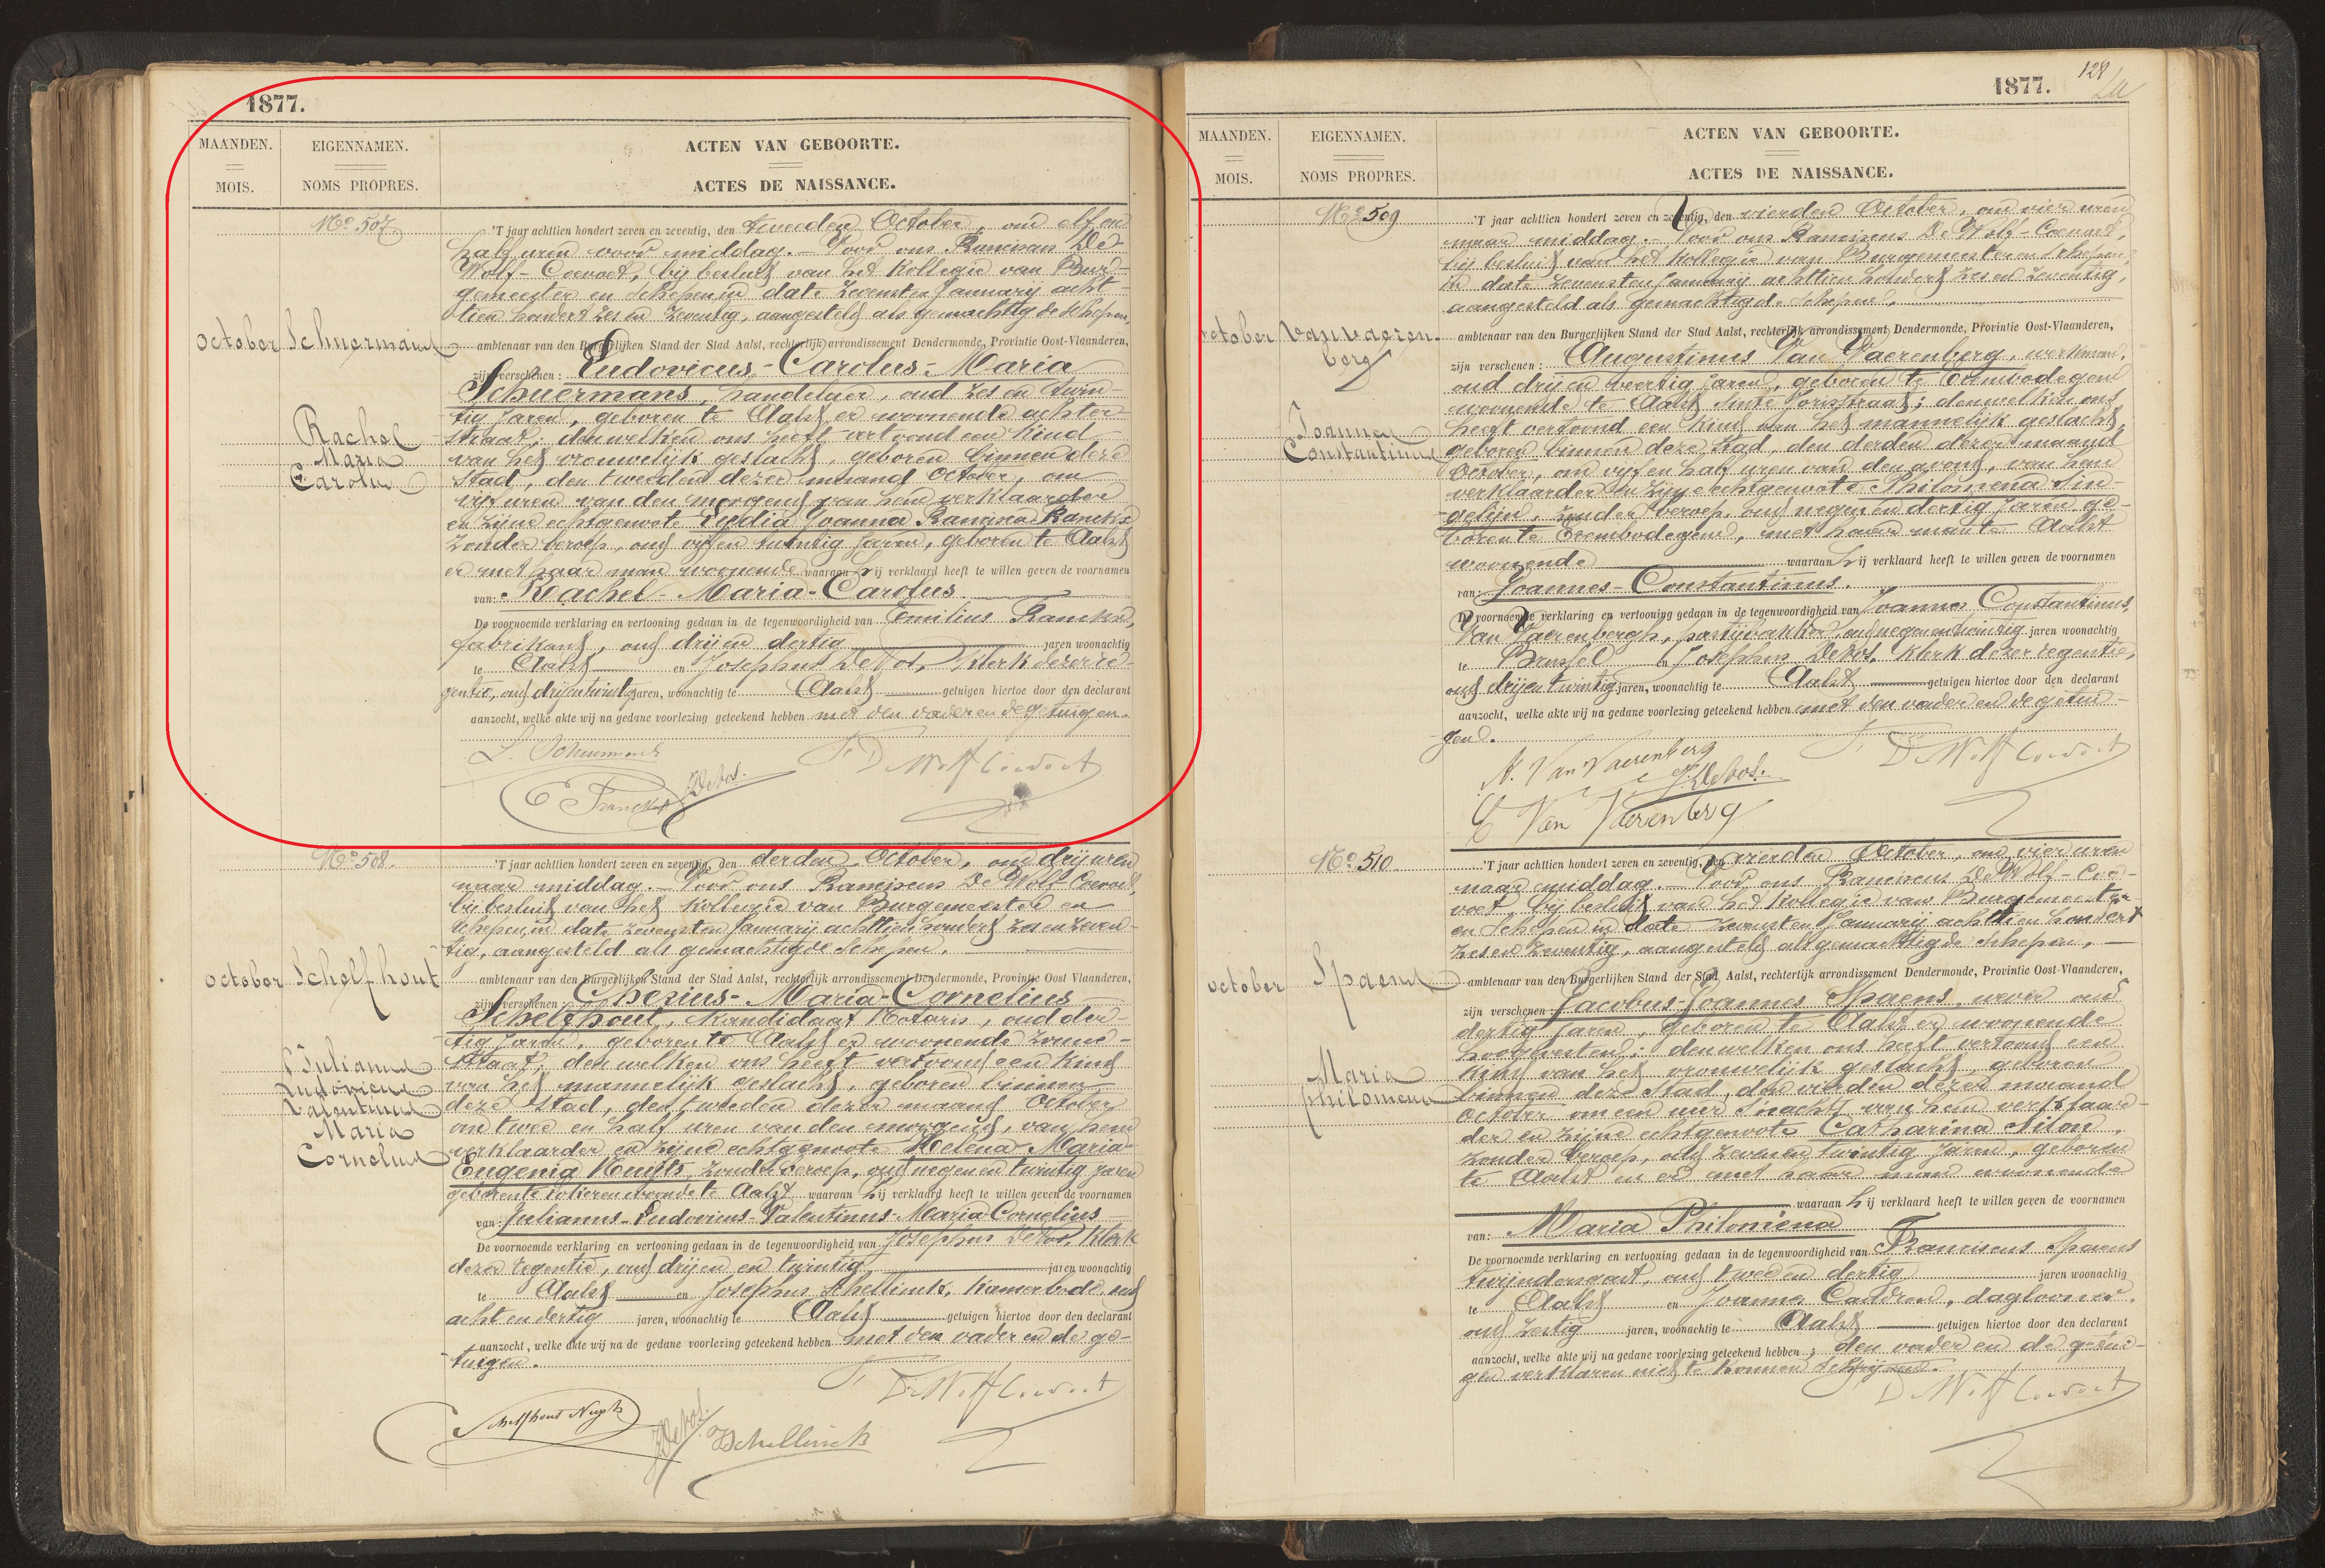 1877.
MAANDEN.
MOIS.
EIGENNAMEN.
NOMS PROPRES.
ACTEN VAN GEBOORTE.
ACTES DE NAISSANCE.
No 507
October
Schuermans
Rachel
Maria
Carolus
'T jaar achttien hondert zeven en zeventig, den tweeden October, om elf en
half uren voor middag. - Voor ons Franciscus De
Wolf - Coevoet, bij besluit van het Kollegie van Bur-
gemeester en Schepen in date zevensten January acht-
tien hondert zes en zeventig, aangesteld als gemachtigde Schepen,
ambtenaar van den Burgerlijken Stand der Stad Aalst, rechterlijk arrondissement Dendermonde, Provintie Oost-Vlaanderen,
zijn verschenen: Ludovicus-Carolus-Maria
Schuermans, handelaer, oud zes en twin-
tig jaren, geboren te Aalst er woonende achter
straat; denwelken ons heeft vertoond een kind
van het vrouwelijk geslacht, geboren binnen deze
stad, den tweeden dezer maand October, om
vijf uren van den morgend van hem verklaarder
en zijne echtgenoote Lydia Joanna Francisca Franckx
zonder beroep, oud vijf en twintig jaren, geboren te Aalst
er met haar man woonende waaraan hij verklaard heeft te willen geven de voornamen
van: Rachel-Maria-Carolus.
De voornoemde verklaring en vertooning gedaan in de tegenwoordigheid van Emilius Franckx,
fabrikant, oud drij en dertig jaren woonachtig
te Aalst en Josephus De Vos, Klerk dezer re-
gentie, oud drijentwintig jaren, woonachtig te Aalst getuigen hiertoe door den declarant
aanzocht, welke akte wij na gedane voorlezing geteekend hebben met den vader en de getuigen.
L. Schuermans
F. De Wolf Coevoet
E Franckx
J De Vos.
No 508.
October
Schelfhout
Julianus
Ludovicus
Valentinus
Maria
Cornelius
'T jaar achttien hondert zeven en zeventig, den derden October, om drij uren
naar middag. - Voor ons Franciscus De Wolf Coevoet,
bij besluit van het Kollegie van Burgemeester en
Schepen in date zevensten January achttien hondert zes en zeven-
tig, aangesteld als gemachtigde Schepen,
ambtenaar van den Burgerlijken Stand der Stad Aalst, rechterlijk arrondissement Dendermonde, Provintie Oost-Vlaanderen,
zijn verschenen: Ghesius-Maria-Cornelius
Schelfhout, Kandidaat Notaris, oud der-
tig jaren, geboren te Aalst er woonende zonne-
straat; denwelken ons heeft vertoond een kind
van het mannelijk geslacht, geboren binnen
deze stad, den tweeden dezer maand October
om twee en half uren van den morgend, van hem
verklaarder en zijne echtgenoote Helena Maria
Eugenia Nuyts, zonder beroep, oud negen en twintig jaren
geboren te woonende te Aalst waaraan hij verklaard heeft te willen geven de voornamen
van: Julianus-Ludovicus-Valentinus-Maria Cornelius
De voornoemde verklaring en vertooning gedaan in de tegenwoordigheid van Josephus De Vos, Klerk
dezer regentie, oud drij en twintig jaren woonachtig
te Aalst en Josephus Schellinck, Kamerbode, oud
acht en dertig jaren, woonachtig te Aalst getuigen hiertoe door den declarant
aanzocht, welke akte wij na de gedane voorlezing geteekend hebben met den vader en de ge-
tuigen.
F. De Wolf Coevoet
Schelfhout Nuyts
J De Vos.
J Schellinck
128
1877.
MAANDEN.
MOIS.
EIGENNAMEN.
NOMS PROPRES.
ACTEN VAN GEBOORTE.
ACTES DE NAISSANCE.
No 509
October
Van Vaeren-
berg
Joannes
Constantinus
'T jaar achttien hondert zeven en zeventig, den vierden October, om vier uren
naar middag. - Voor ons Franciscus De Wolf-Coevoet,
bij besluit van het Kollegie van Burgemeester en Schepen,
in date zevensten January achttien hondert zes en zeventig,
aangesteld als gemachtigde Schepen,
ambtenaar van den Burgerlijken Stand der Stad Aalst, rechterlijk arrondissement Dendermonde, Provintie Oost-Vlaanderen,
zijn verschenen: Augustinus Van Vaerenberg, werkman,
oud drij en veertig jaren, geboren te Erembodegem
woonende te Aalst Sinte Jorisstraat; denwelken ons
heeft vertoond een kind van het mannelijk geslacht,
geboren binnen deze stad, den derden dezer maand
October, om vijf en half uren van den avond, van hem
verklaarder en zijne echtgenoote Philomena Sin-
gelijn, zonder beroep, oud negen en dertig jaren ge-
boren te Erembodegem, met haren man te Aalst
woonende waaraan hij verklaard heeft te willen geven de voornamen
van: Joannes-Constantinus.
De voornoemde verklaring en vertooning gedaan in de tegenwoordigheid van Joannes Constantinus,
Van Vaerenbergh, pastijbakker, oud negen en twintig jaren woonachtig
te Brussel en Josephus De Vos, Klerk dezer regentie,
oud drijen twintig jaren, woonachtig te Aalst getuigen hiertoe door den declarant
aanzocht, welke akte wij na gedane voorlezing geteekend hebben met den vader en de getui-
gen.
A. Van Vaerenberg
F. De Wolf Coevoet
J. De Vos.
C Van Vaerenberg
No 510
October
Spaens
Maria
Philomena
'T jaar achttien hondert zeven en zeventig, den vierden October, om vier uren
naar middag. - Voor ons Franciscus De Wolf-Coe-
voet, bij besluit van het Kollegie van Burgemeester
en Schepen in date zevensten January achttien hondert
zes en zeventig, aangesteld als gemachtigde Schepen,
ambtenaar van den Burgerlijken Stand der Stad Aalst, rechterlijk arrondissement Dendermonde, Provintie Oost-Vlaanderen,
zijn verschenen: Jacobus-Joannes Spaens, wever oud
dertig jaren, geboren te Aalst er woonende
hoogevesten; denwelken ons heeft vertoond een
kind van het vrouwelijk geslacht, geboren
binnen deze stad, den vierden dezer maand
October om een uur 's nachts van hem verklaar-
der en zijne echtgenoote Catharina Filon,
zonder beroep, oud zeven en twintig jaren, geboren
te Aalst en er met haren man woonende
waaraan hij verklaard heeft te willen geven de voornamen
van: Maria Philomena
De voornoemde verklaring en vertooning gedaan in de tegenwoordigheid van Franciscus Spaens
twijndersgast, oud twee en dertig jaren woonachtig
te Aalst en Joannes Caudron, daglooner,
oud zestig jaren, woonachtig te Aalst getuigen hiertoe door den declarant
aanzocht, welke akte wij na gedane voorlezing geteekend hebben; den vader en de getui-
gen verklaren niet te konnen schrijven.
De Wolf Coevoet